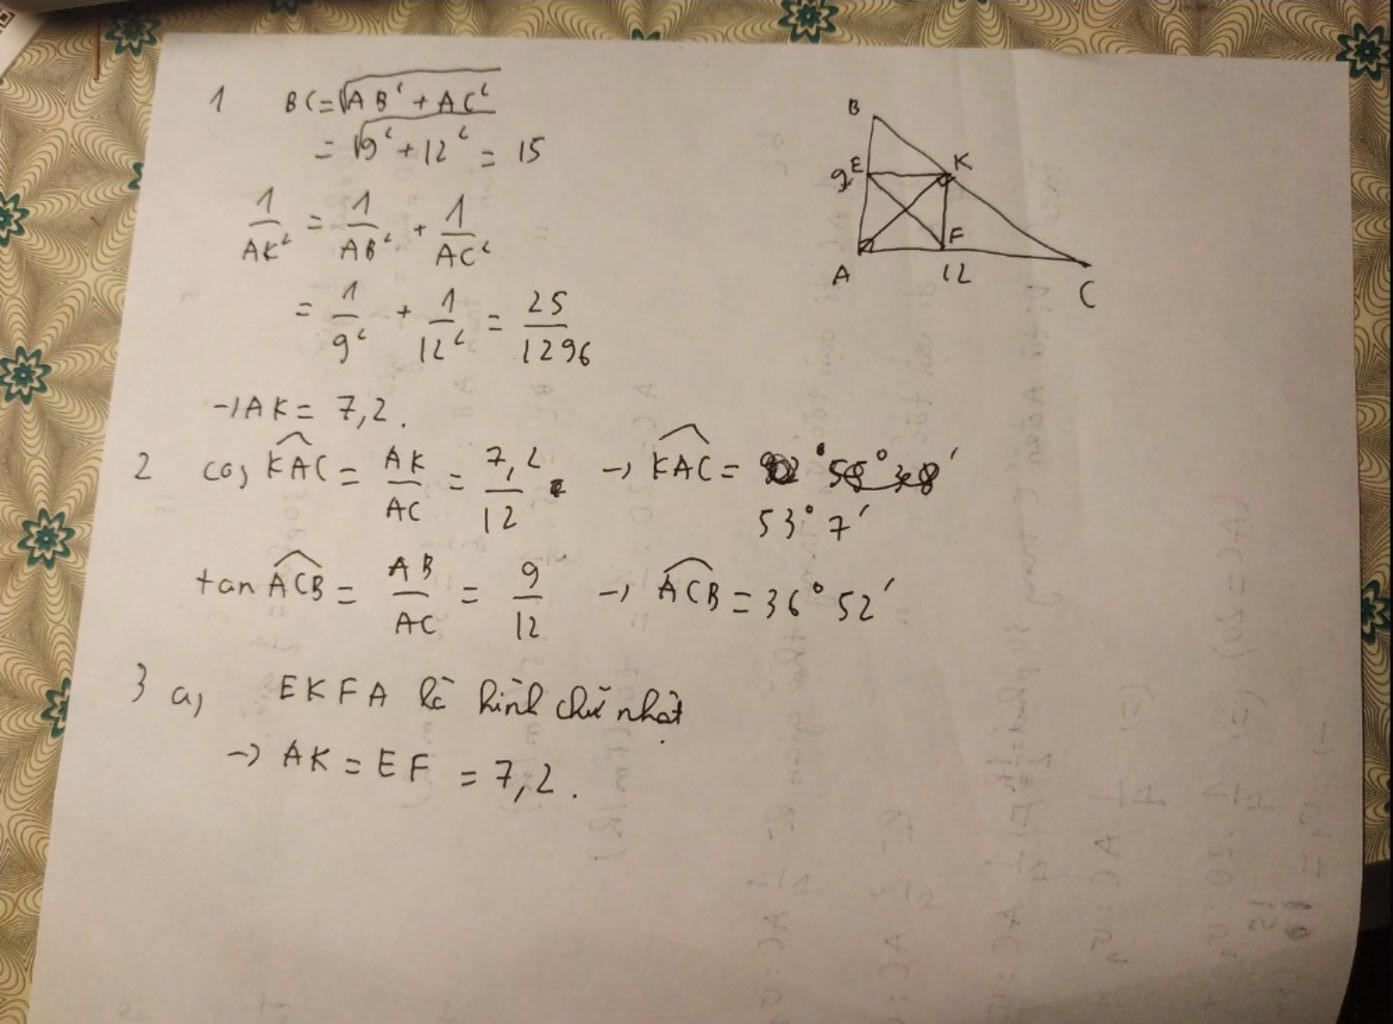 1 BC = √AB² + AC²
= √9² + 12² = 15
1/AK² = 1/AB² + 1/AC²
= 1/9² + 1/12² = 25/1296
→ AK = 7,2.
2 cos KAC = AK/AC = 7,2/12 → KAC =
53° 7'
tan ACB = AB/AC = 9/12 → ACB = 36° 52'
3 a, EKFA là hình chữ nhật
→ AK = EF = 7,2.
B
9 E K
A F
12 C